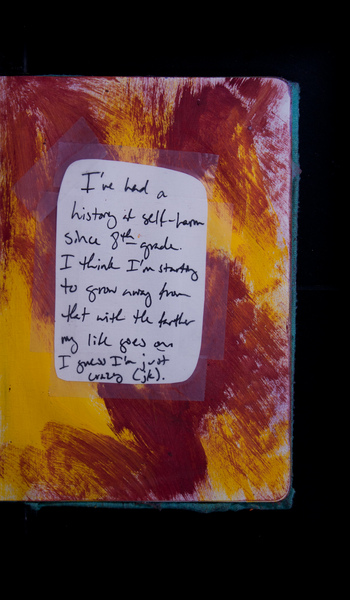 I've had a
history of self-harm
since 8th grade.
I think I'm starting
to grow away from
that with the farther
my life goes on
I guess I'm just
crazy (jk).